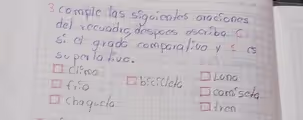 3 comple las siguientes oraciones
del recuadro, despues escriba C
si el grado comparativo y S es
superlativo.
□ clima □ bicicleta □ Luna
□ frio □ camiseta
□ chaqueta □ tren